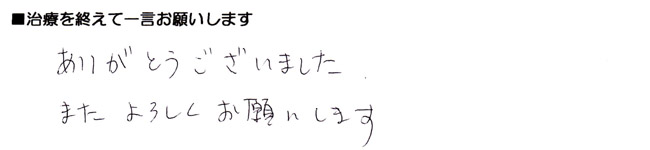 ■治療を終えて一言お願いします
ありがとうございました
また よろしく お願いします